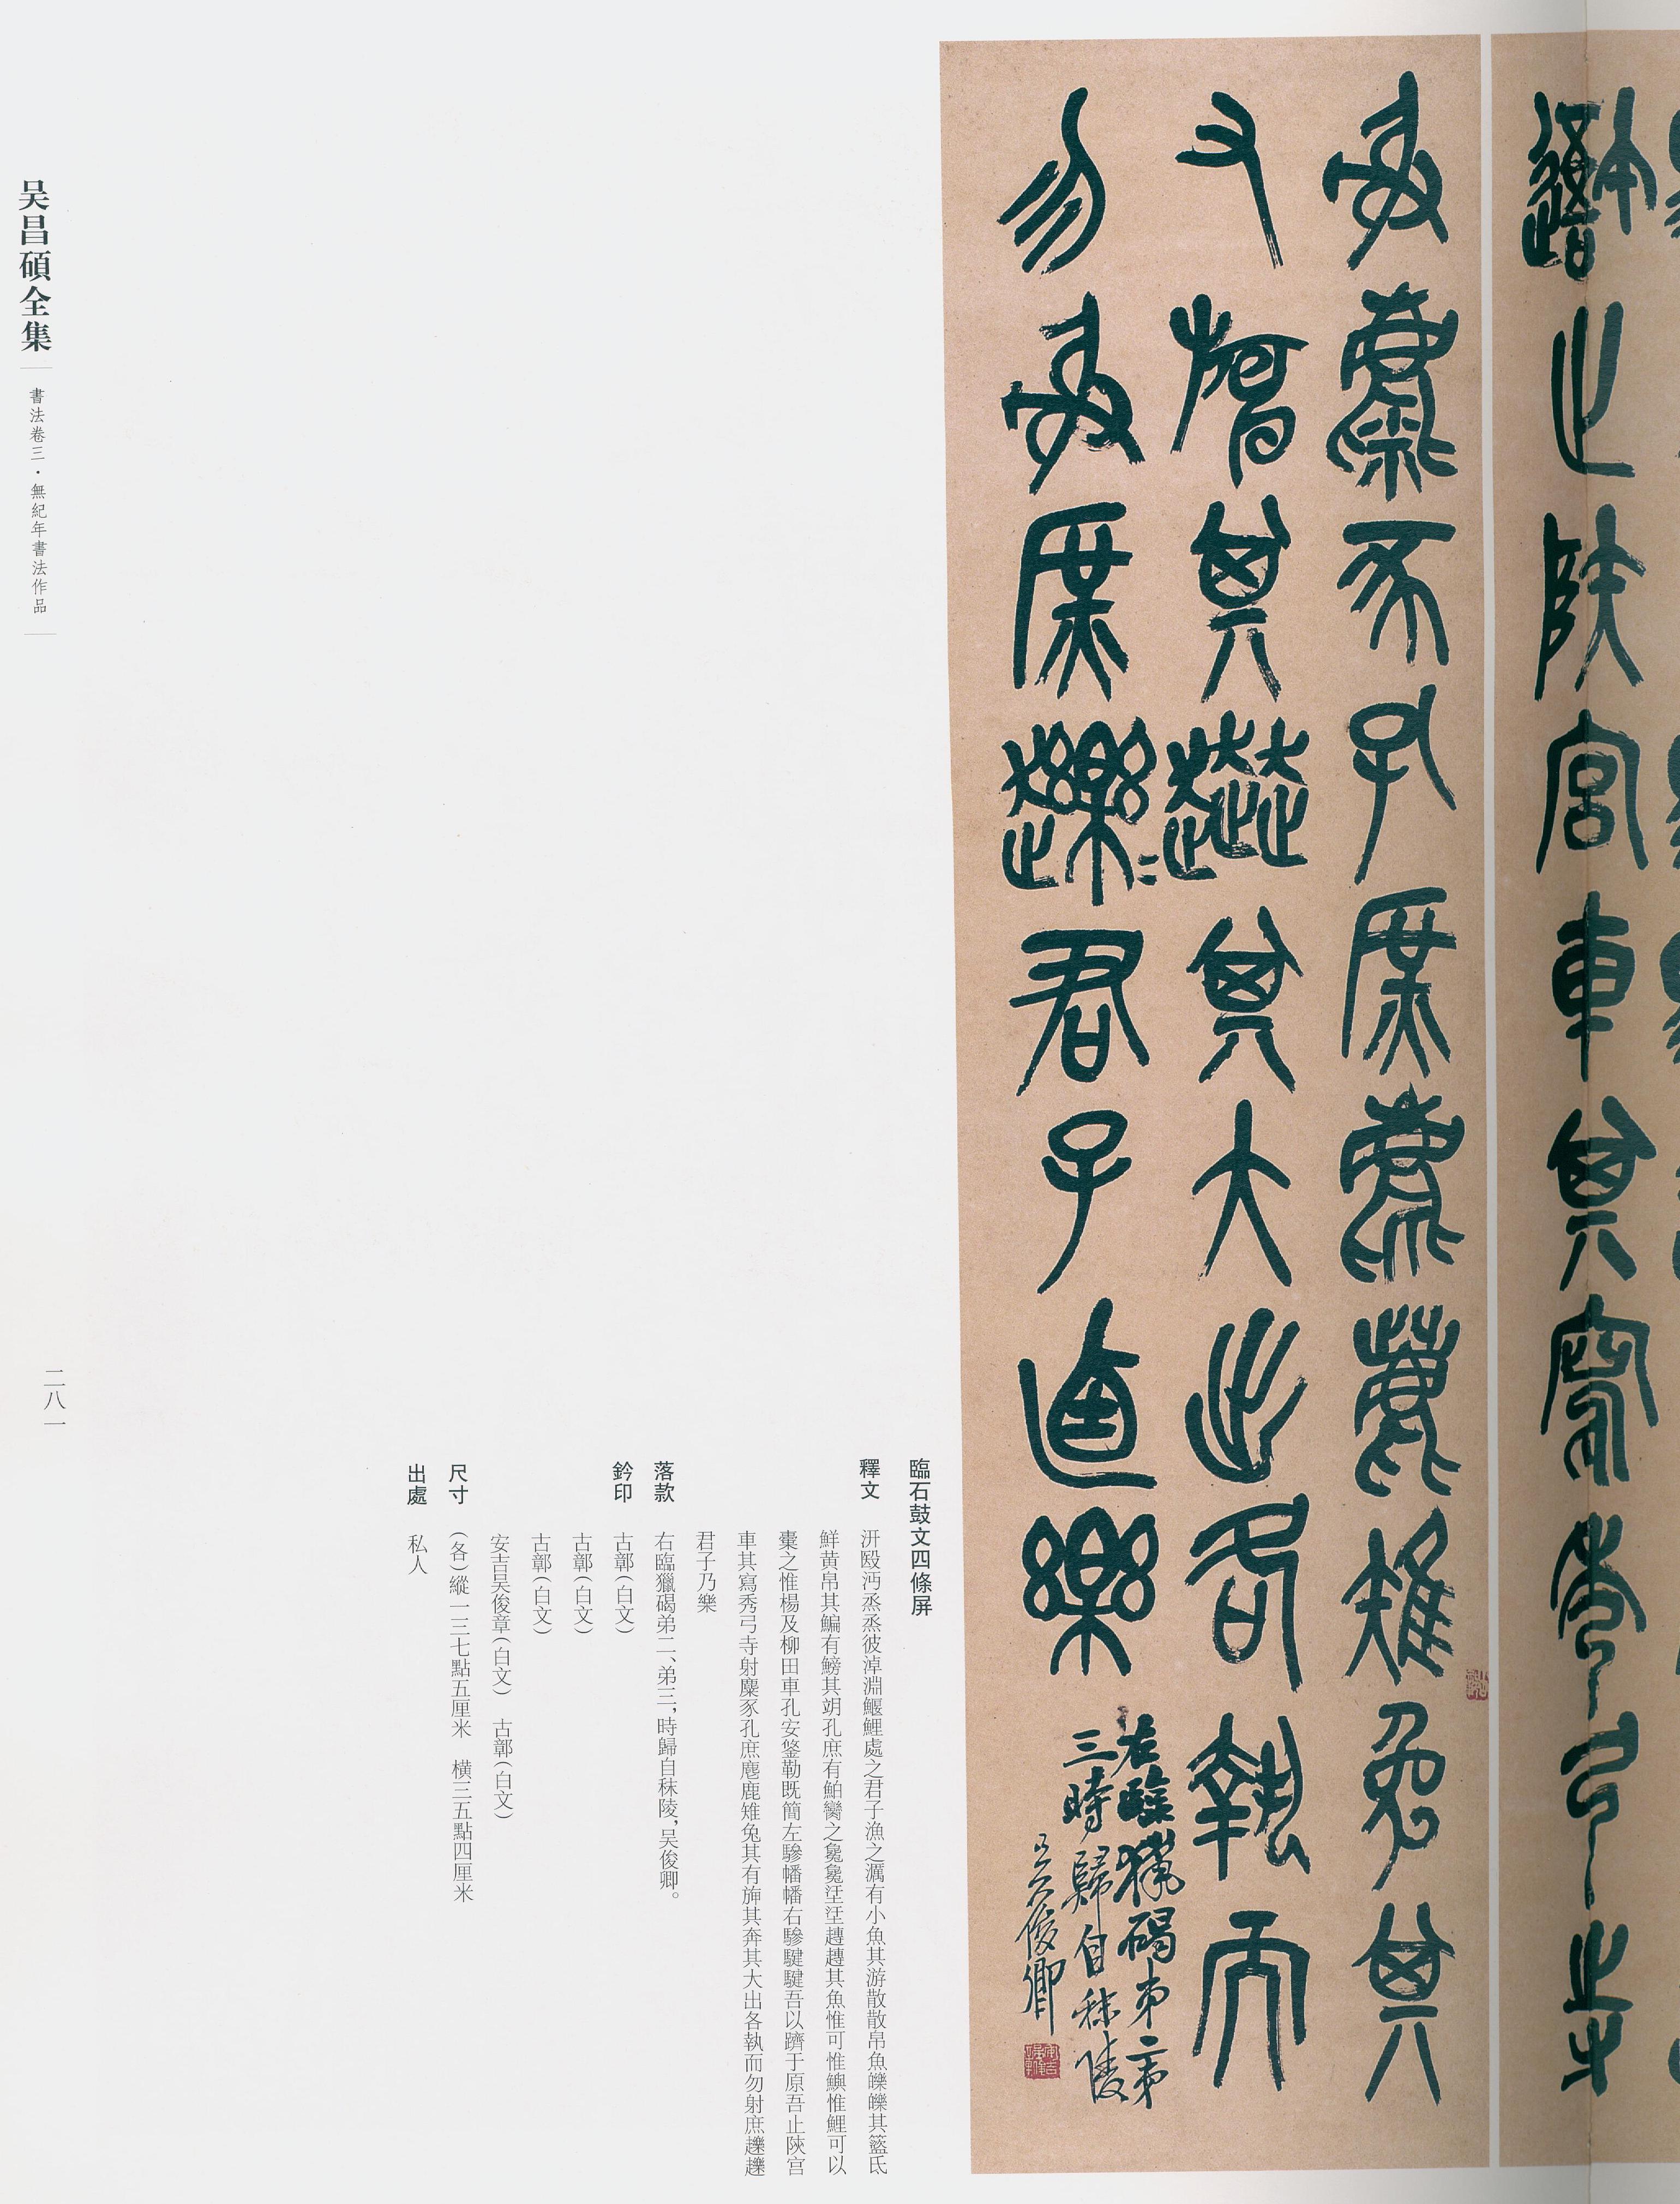 禦之陝宮車其寫秀弓寺
射麋豕孔庶麀鹿雉兔其
又旃其奔其大出各執而
勿射庶趮=君子逌樂
右臨獵碣弟二弟
三時歸自秣陵
吳俊卿
臨石鼓文四條屏
釋文
汧殹沔烝烝彼淖淵鰋鯉處之君子漁之澫有小魚其游散散帛魚皪皪其籃氐
鮮黄帛其鯿有鰟其𦐇孔庶有鮊臠之毚毚𣹰𣹰䞣䞣其魚惟可惟鱮惟鯉可以
橐之惟楊及柳田車孔安鋚勒既簡左驂幡幡右驂騝騝吾以隮于原吾止陝宮
車其寫秀弓寺射麋豕孔庶麀鹿雉兔其有旃其奔其大出各執而勿射庶趮趮
君子乃樂
落款 右臨獵碣弟二、弟三，時歸自秣陵，吴俊卿。
鈐印 古鄣（白文）
古鄣（白文）
古鄣（白文）
安吉吴俊章（白文） 古鄣（白文）
尺寸 （各）縱一三七點五厘米 横三五點四厘米
出處 私人
吴昌碩全集
書法卷三・無紀年書法作品
二八一